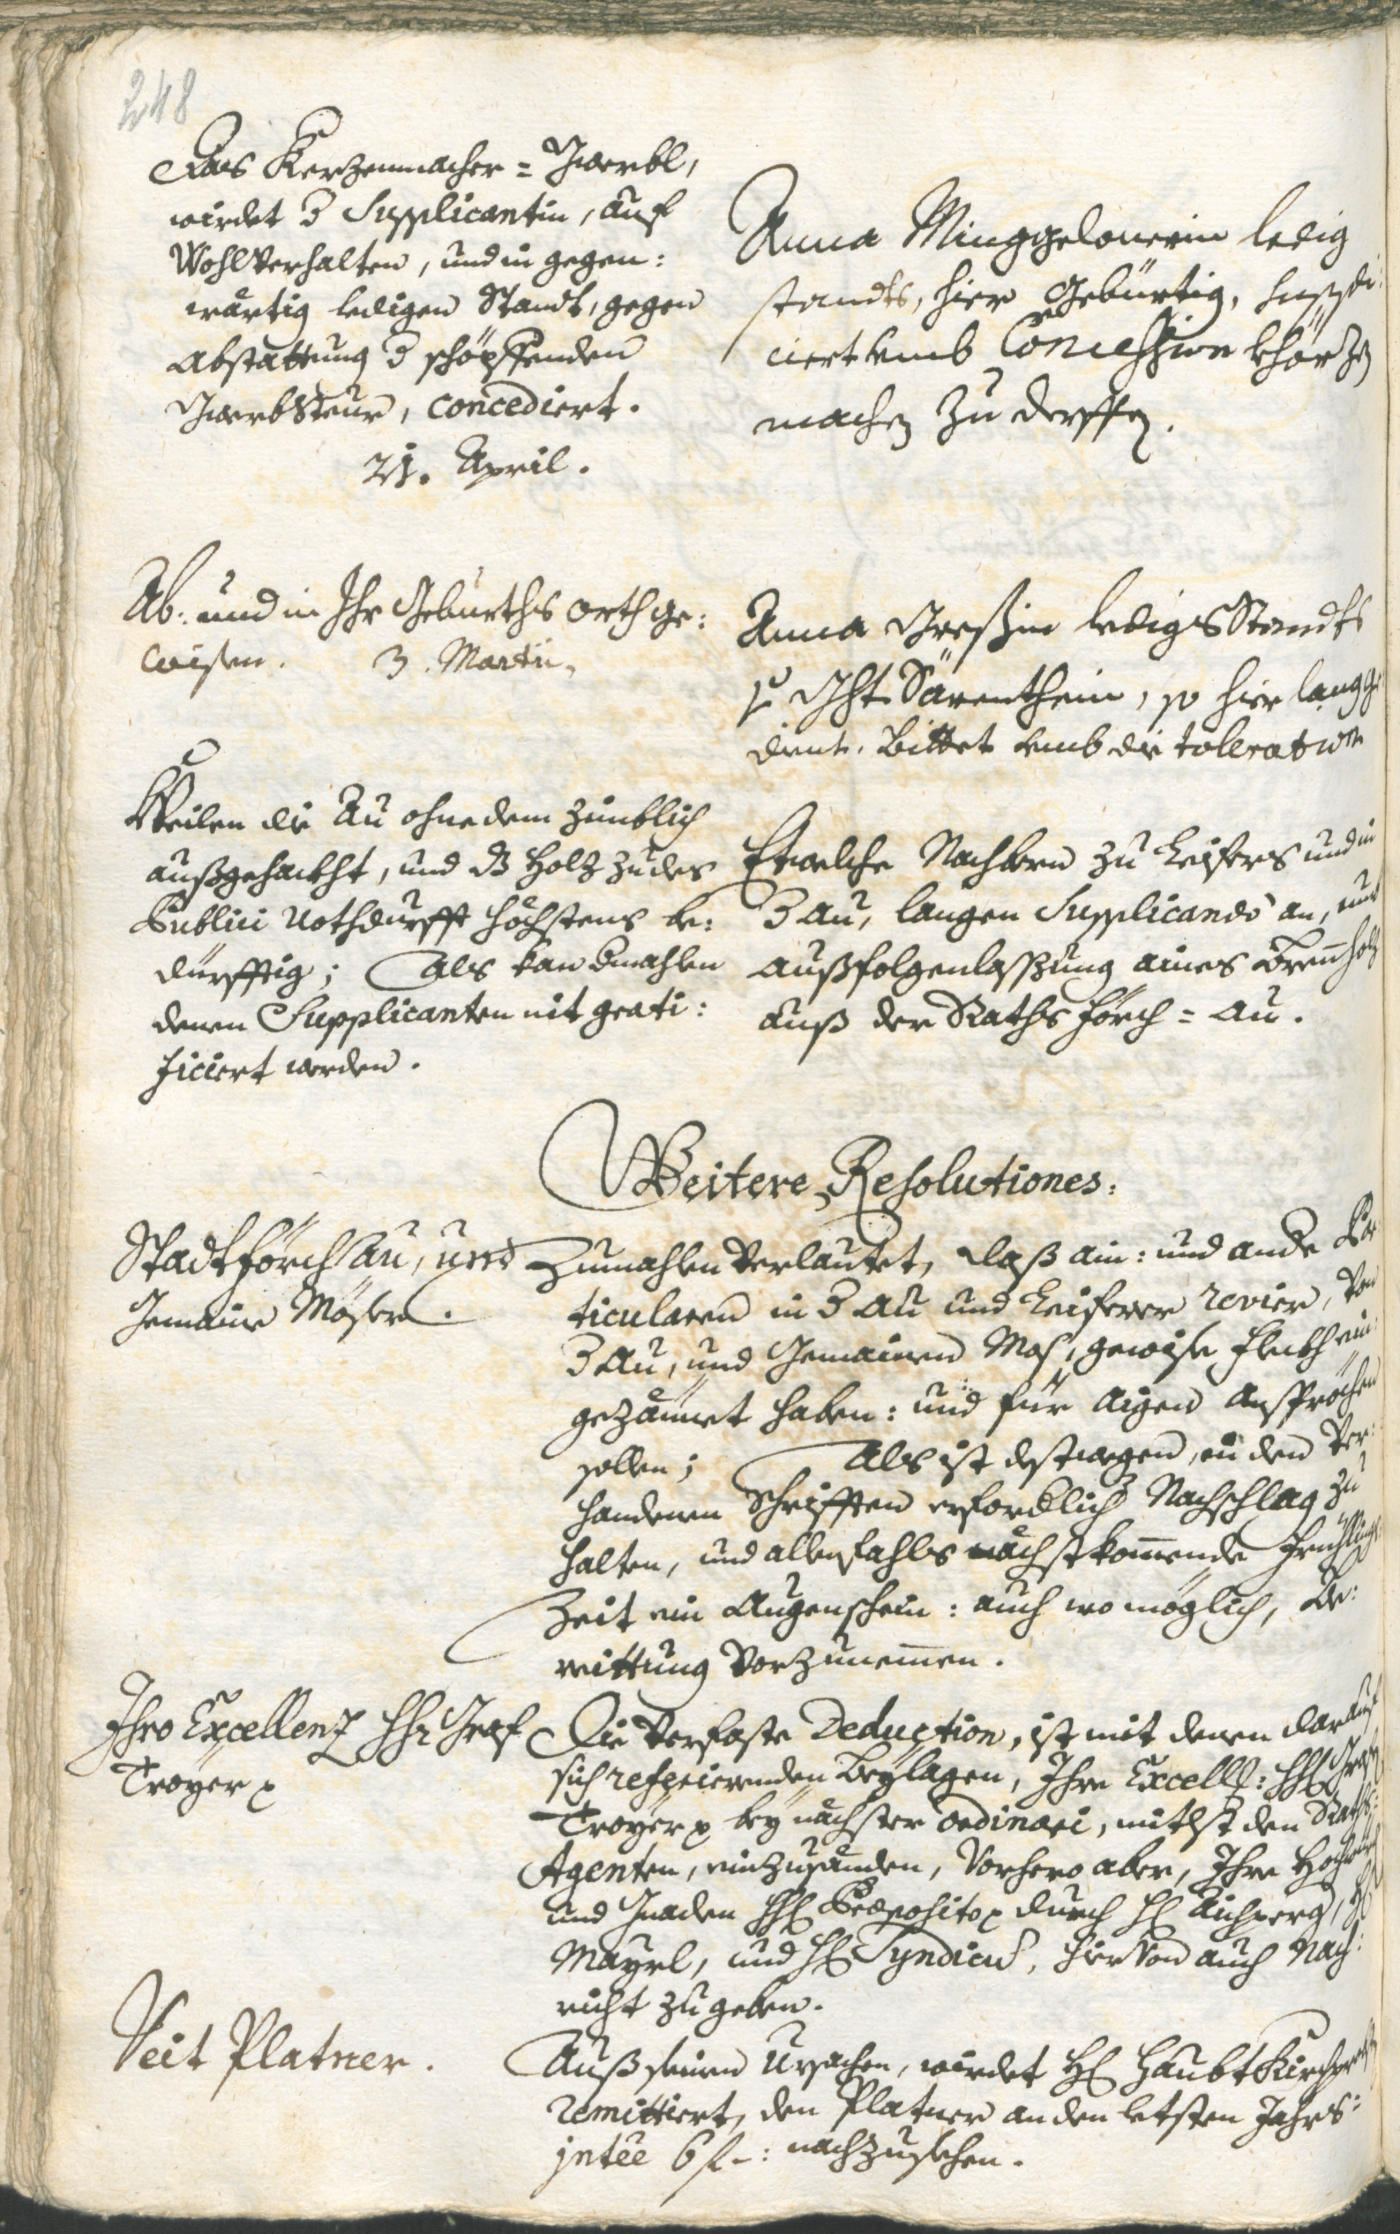 248
Das Kerzenmacher=Gwerbl,
wirdet d Supplicantin, auf
Wohlverhalten, und in gegen:
wärtig ledigen Standt, gegen
Abstattung d schöpffenden
Gwerbsteur, concediert.
21. April.
Anna Minggelonerin ledig
standts, hier gebürtig, suppli
ciert umb Concession Khörzen
machen zu derffen.
Ab: und in Ihr Geburths orth ge:
wisen. 3. Martii.
Anna Grässin ledigs Standts
Ght Särenthein, so hier lang ge
dient, bittet umb die toleration
Weilen die Au ohne dem zimblich
außgehackht, und dz Holz zu des
Publici Nothdurfft höchstens be:
dürfftig; Als kan dmahlen
denen Supplicanten nit grati:
ficiert werden.
Etwelche Nachbern zu Leifers und in
d Au, langen Supplicando an, umb
außfolgenlassung aines Brennholz
auß der Raths Förch=Au.
Weitere Resolutiones:
Stadt Förch Au, und
Gemaine Möser.
Zumahlen verlautet, daß ain: und ande Par
ticularn in d Au und Leiferer revier, von
d Au, und Gemainen Mos, gewise fleckh ein:
gezäunet haben: und für aigen ansprechen
sollen; Als ist destwegen, in den ver:
handenen Schrifften erforderlich Nachschlag zu
halten, und allenfahls nächstkommende Frühlings
Zeit ein Augenschein: auch wo möglich, Be:
reittung vorzunemmen.
Ihro Excellenz HHr Graf
Troyer p
Die verfaste Deduction, ist mit denen darauf
sich referierenden Beylagen, Ihro Excell: HH Grafen
Troyer p bey nächster ordinari, mitlst den Raths:
Agenten, einzusenden, Vorhero aber, Ihro Hochwürd
und Gnaden HH Præposito p durch H Aichperg, H
Mayrl, und H Syndicus, hiervon auch Nach:
richt zu geben.
Veit Platner.
Auß seinen Ursachen, wirdet H Haubt Kirchprobst
remittiert, den Platner an den letsten Jahrs:
jntée 6 f –: nachzusehen.